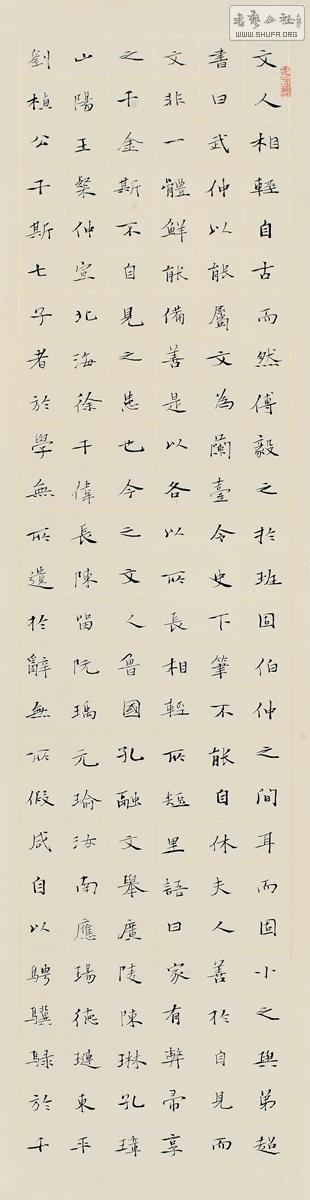 文人相輕自古而然傅毅之於班固伯仲之間耳而固小之與弟超
書曰武仲以能屬文為蘭臺令史下筆不能自休夫人善於自見而
文非一體鮮能備善是以各以所長相輕所短里語曰家有弊帚享
之千金斯不自見之患也今之文人魯國孔融文舉廣陵陳琳孔璋
山陽王粲仲宣北海徐干偉長陳留阮瑀元瑜汝南應瑒德璉東平
劉楨公干斯七子者於學無所遺於辭無所假咸自以騁驥騄於千
WWW.SHUFA.ORG